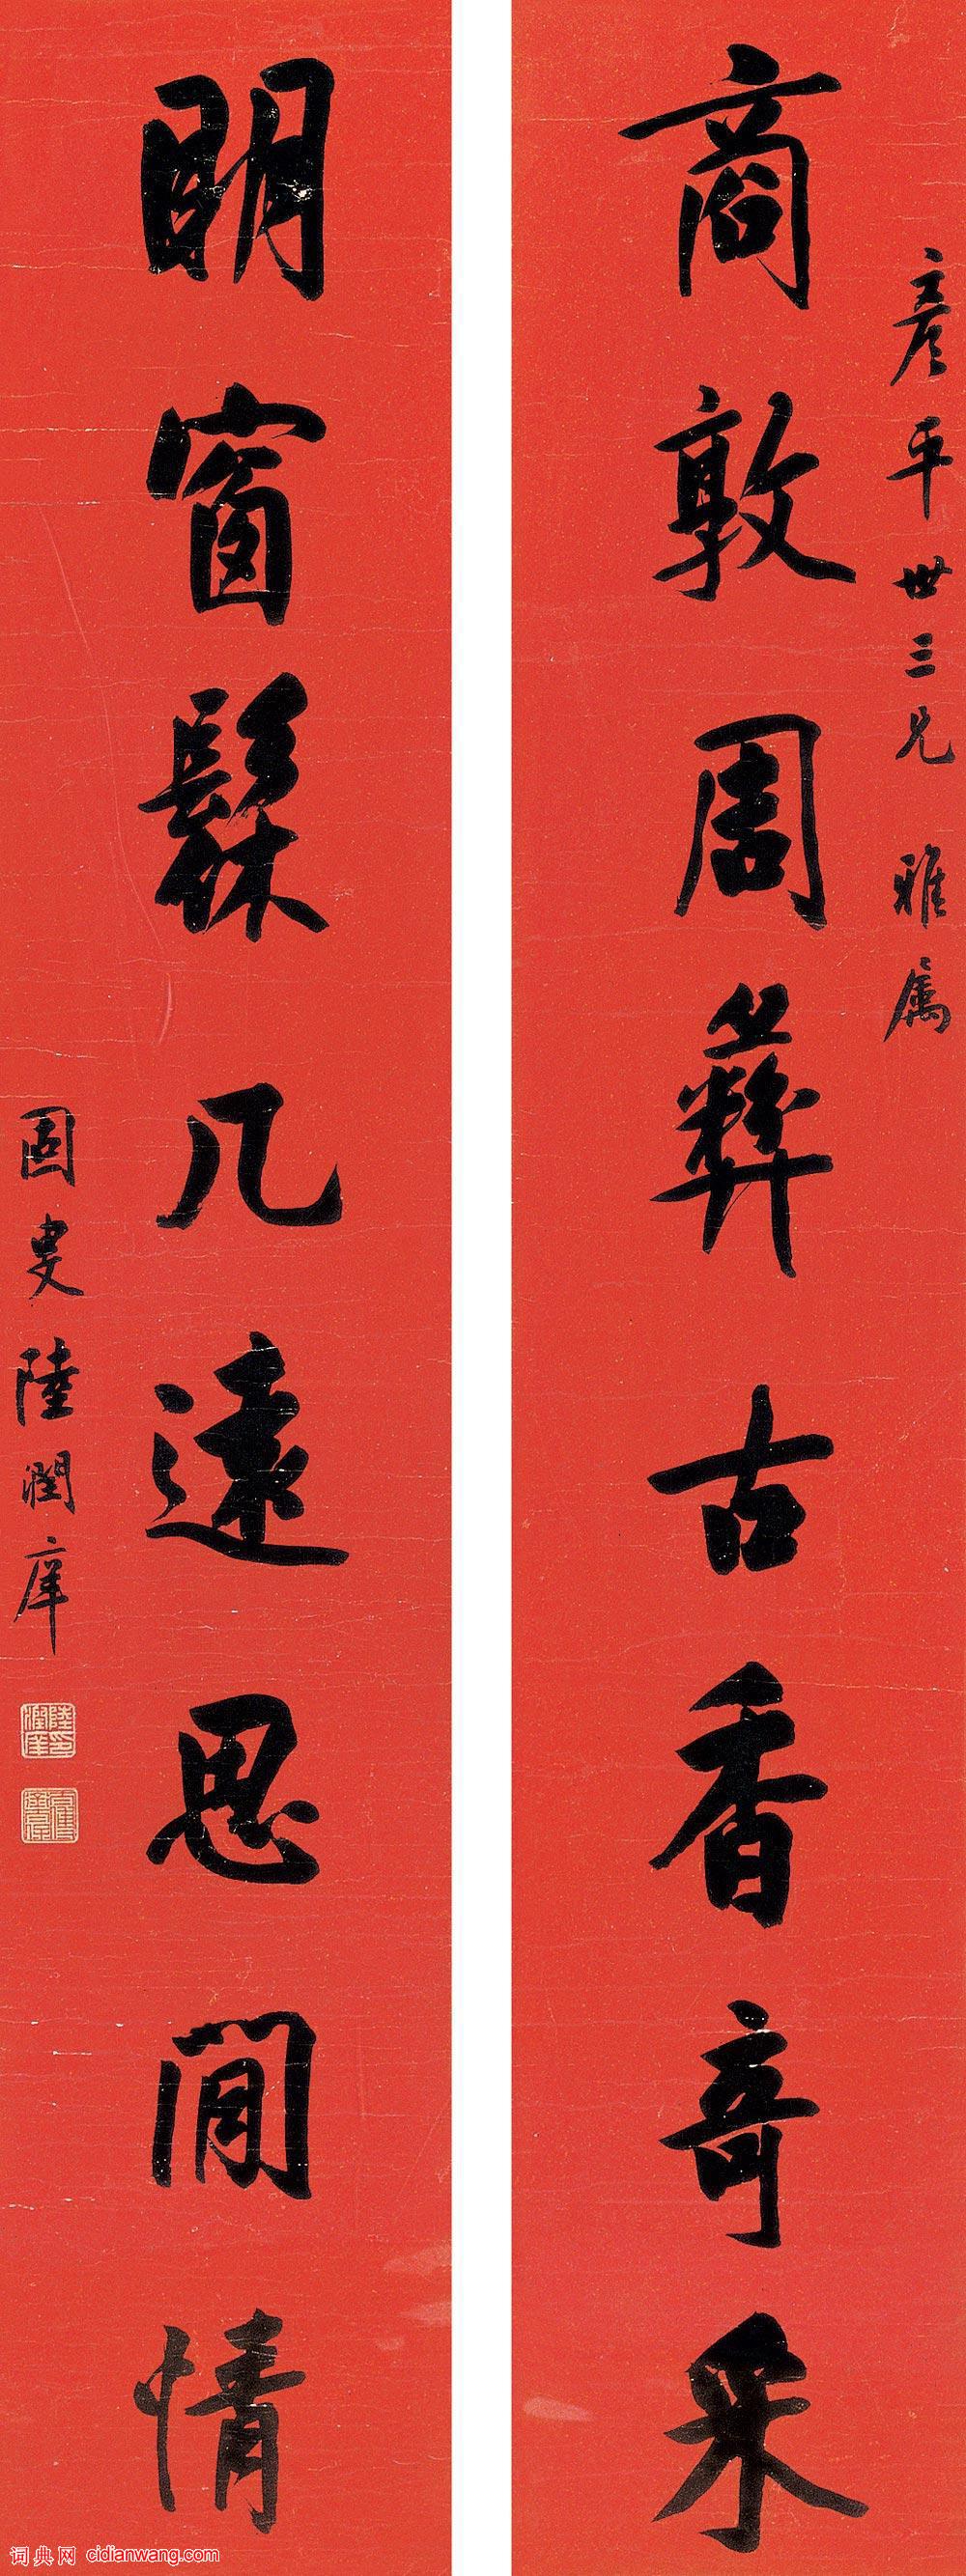 彦平世三兄 雅属
商敦周彝古香奇采
明窗髹几远思闲情
固叟陆润庠
陆润庠印
词典网 cidianwang.com